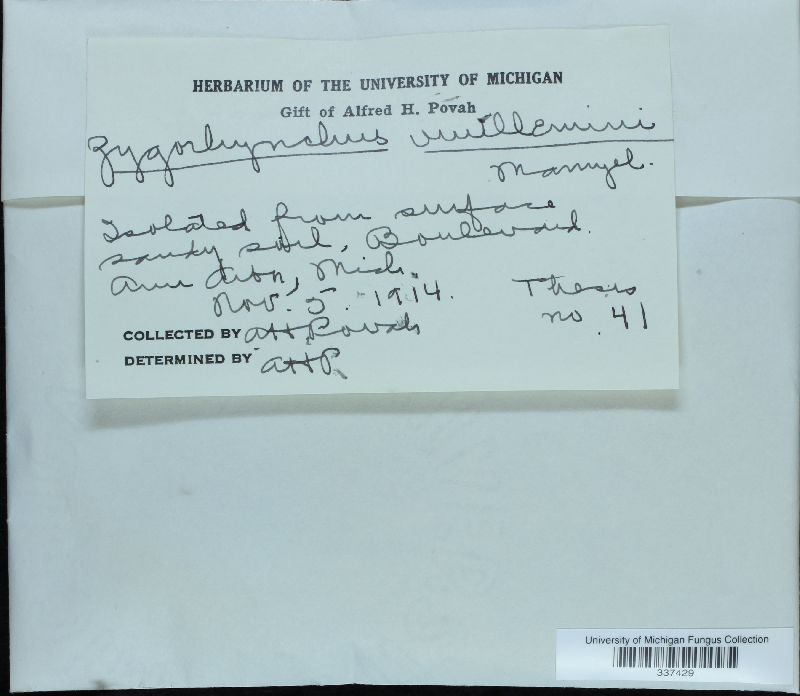 HERBARIUM OF THE UNIVERSITY OF MICHIGAN
Gift of Alfred H. Povah
Zygorhynchus vuillemini
Isolated from surface
sandy soil, Boulevard.
Ann Arbor, Mich.
Nov. 5. 1914.
Thesis
no. 41
COLLECTED BY AHPovah
DETERMINED BY AHP
University of Michigan Fungus Collection
337429